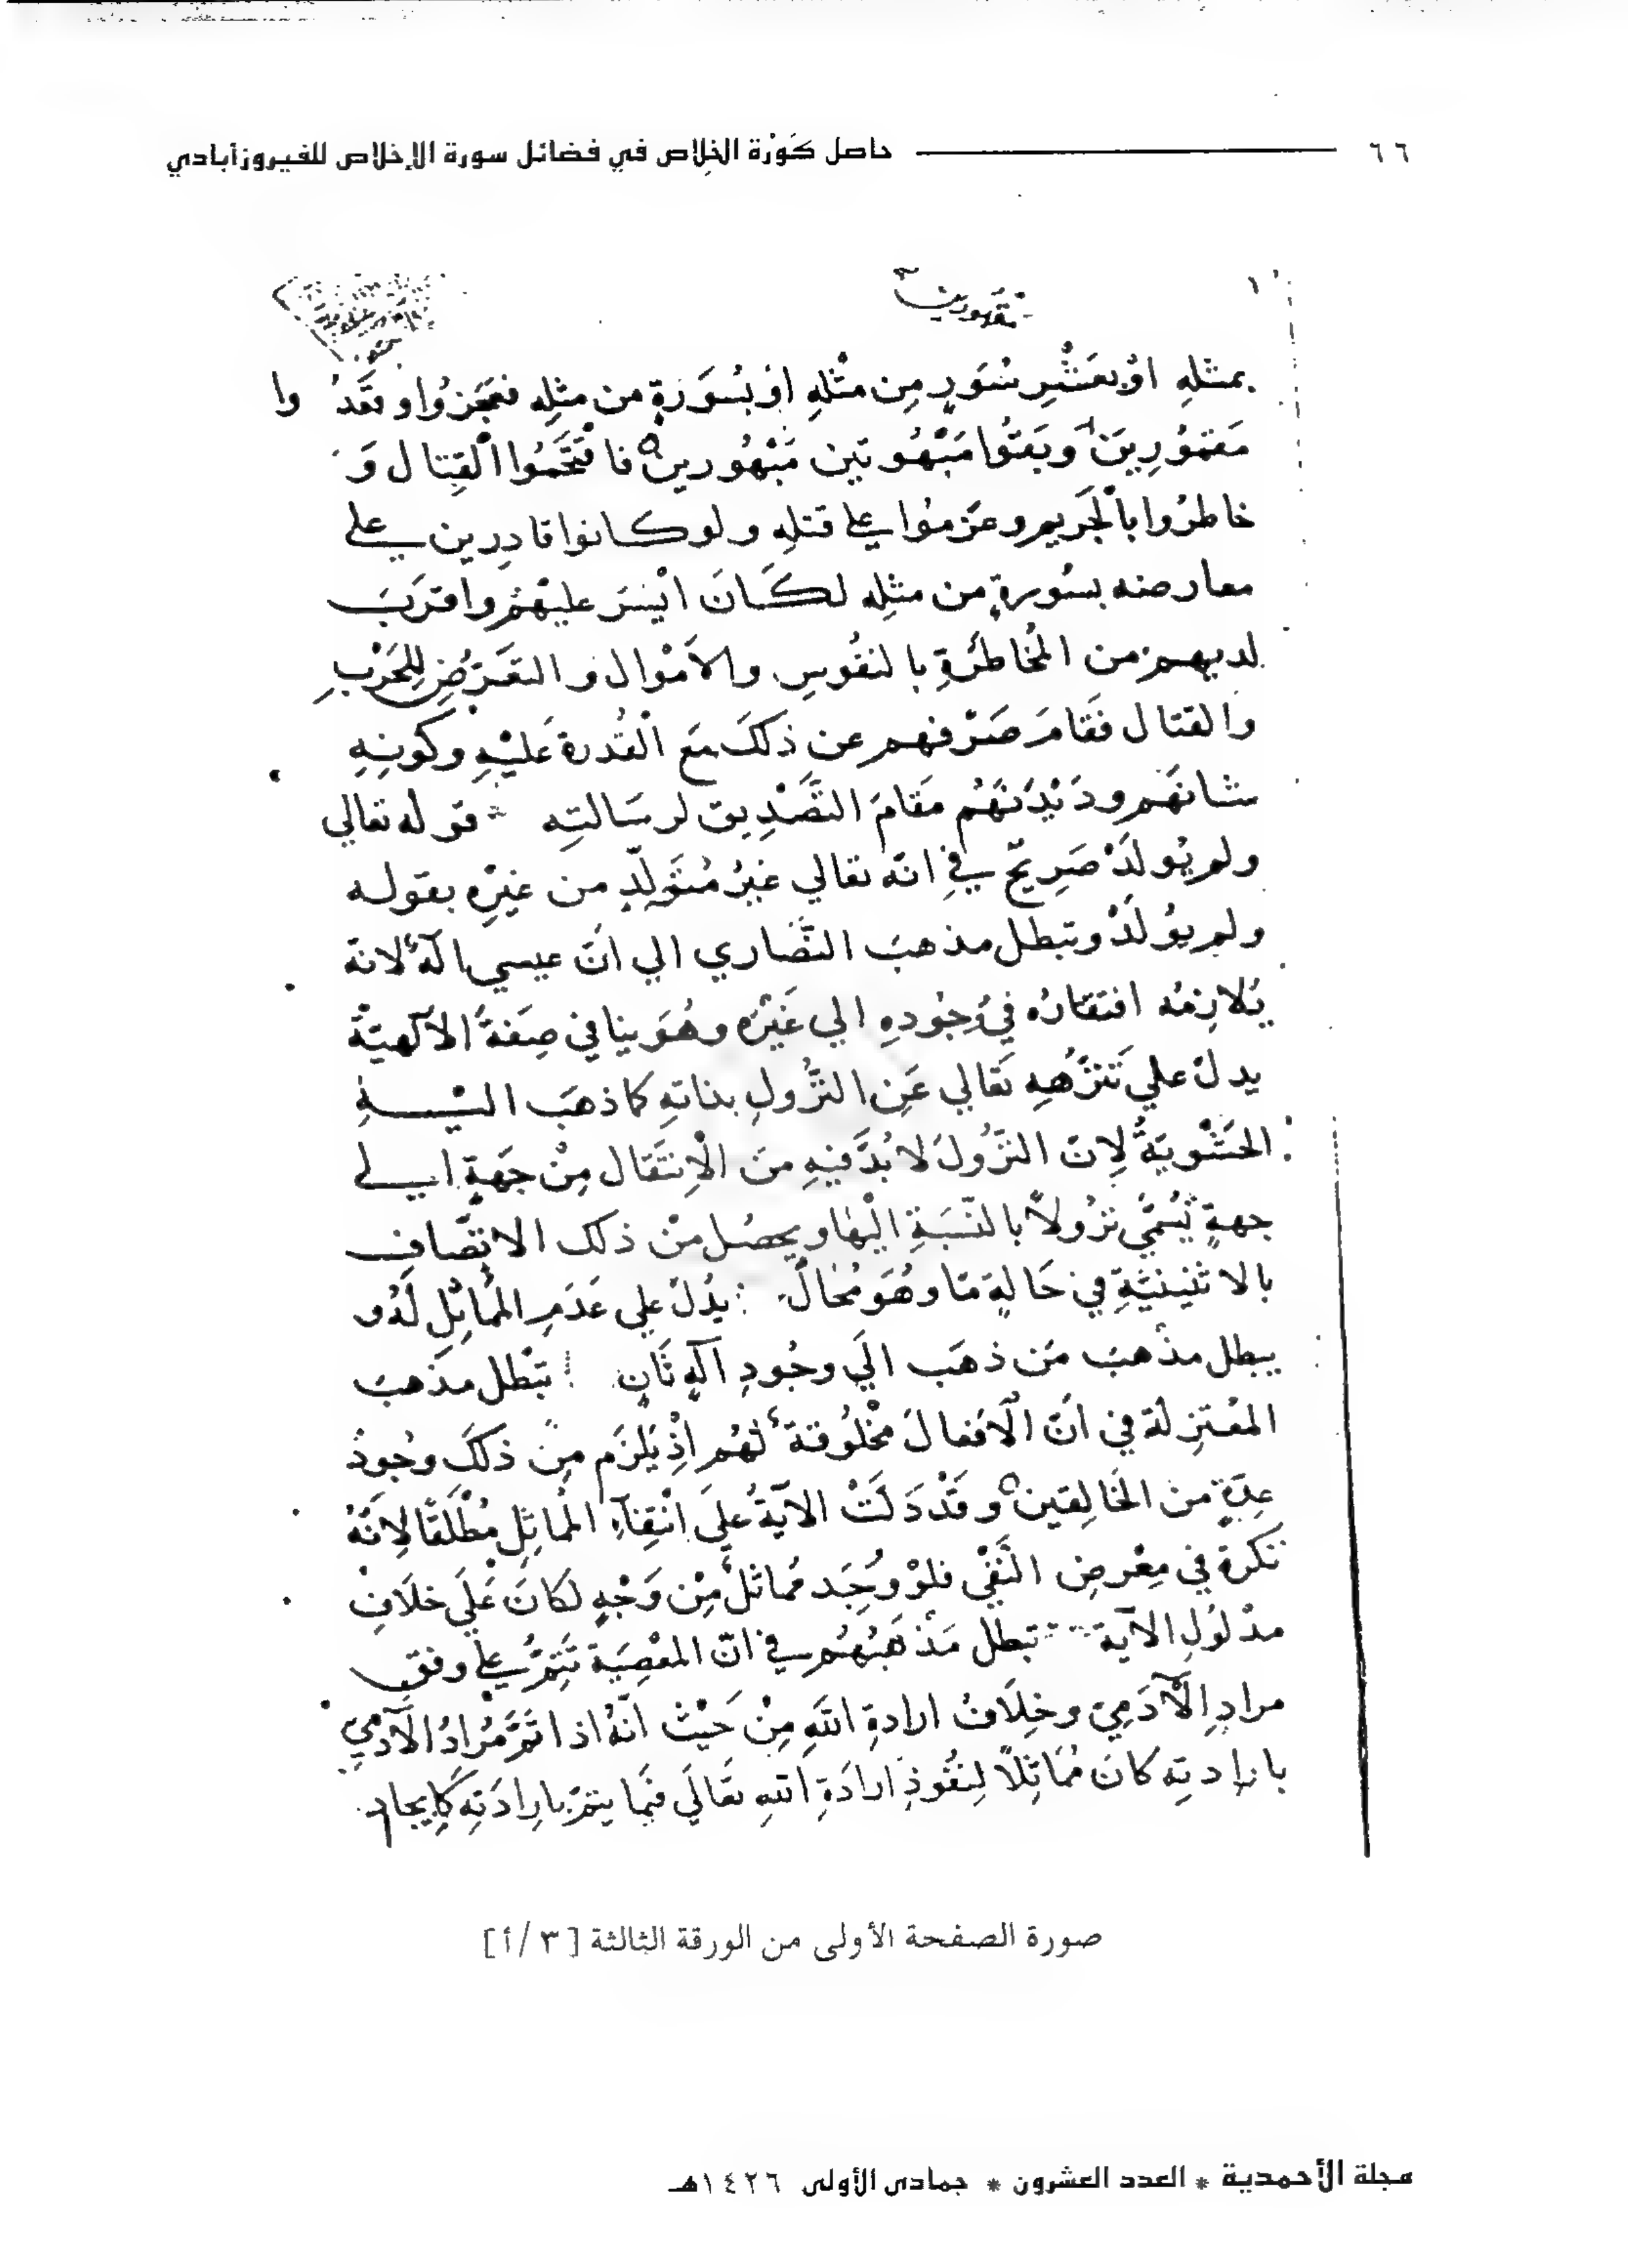 ٦٦ حاصل كَوْرَة الخِلاص في فضائل سورة الإخلاص للفيروزآبادي
بمثلهِ اوْ بعَشْرِ سُوَرٍ مِن مثْلهِ اوْ بسُورَةٍ من مثلِه فعَجَزوُا وقعَدُ وا
مَقهوُرِينَ وبقَوُا مَبْهُوتين مَبْهُورين فاقْتَحَمُوا الْقِتال وَ
خاطرُوا بالْجَريم وعَزموُا على قتلِه ولو كانوا قادرين على
معارضته بسُورةٍ من مثلِه لكَانَ ايْسَرَ عليهْمْ واقرَبَ
لديهم من المُخاطرَةِ بالنفُوسِ والأمْوال والتعَرّضِ لِلحَرْبِ
والقتال فَقامَ صَرْفهم عن ذلكَ مَع الْقُدرة عَليْهِ وكونِهِ
شانَهَم ودَيْدَنَهُم مَقامَ التَّصْدِيق لرسَالتِه قوله تعالي
ولم يُولَدْ صَرِيحٌ في انّه تعالي غيْرُ مُتَولِّدٍ من غيْرِه بقوله
ولم يُولَدْ وتبطل مذهبَ النّصَاري الي انّ عيسي اله لانهّ
يُلازمُه افتقارُه في وُجُودهِ الي غَيْرِه وهُوَ ينافي صِفَةَ الالهيّة
يدلّ علي تَنَزُّهِه تعَالي عَنِ النزُّولِ بذاتهِ كما ذهَبَ اليْهِ
الحَشْويّةُ لِانّ النزُّولَ لَا بُدَّ فيهِ منَ الْانتَقال مِنْ جَهةٍ الى
جهةٍ تُسَمّي نزُولاً بالنّسَبَةِ اليْهَا ويحصُل منْ ذلك الاتّصاف
بالاثنينيَّةِ في حَالةٍ مّا وهُوَ مُحَالٌ يدُلّ علي عَدَمِ المُماثِلِ لَهُ و
يبطل مذْهبَ مَن ذهَب الَي وجُودِ الهٍ ثَانٍ تبْطل مذهبَ
المعْتزِلة في انّ الْافعالَ مخْلُوقة لهُم اذْ يَلزَم مِنْ ذلكَ وجُودُ
عِدّةٍ من الخَالِقين وقَدْ دَلتْ الآيَةُ علَي انْتِفاءِ المُماثِلِ مُطْلَقًا لِانّهُ
نكرة في مِعْرضِ النَّفْي فلوْ وُجَد مُماثلٌ مِنْ وَجْهٍ لكانَ عَلَي خلَافِ
مدْلُولِ الآية تبطل مَذهَبُهُم في انّ المعْصِيَة تَتِمُّ على وفق
مرادِ الْآدَمِيّ وخِلَافُ ارادةِ اللهِ مِنْ حَيْثُ انّهُ اذا تَمَّ مُرادُ الآدمْيّ
بارادتِه كانَ مُمَاثِلاً لِنفُوذِ ارادَةِ اللهِ تعَالَي فيَما يتمّ بارادَتِه كايجادِ
صورة الصفحة الأولى من الورقة الثالثة [ ٣ /أ]
مجلة الأحمدية * العدد العشرون * جمادى الأولى ١٤٢٦هـ